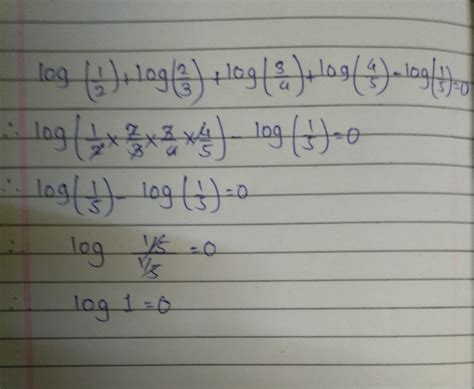 log(1/2)+log(2/3)+log(3/4)+log(4/5)-log(1/5)=0
∴ log(1/2×2/3×3/4×4/5)-log(1/5)=0
∴ log(1/5)-log(1/5)=0
∴ log 1/5/1/5=0
∴ log 1=0